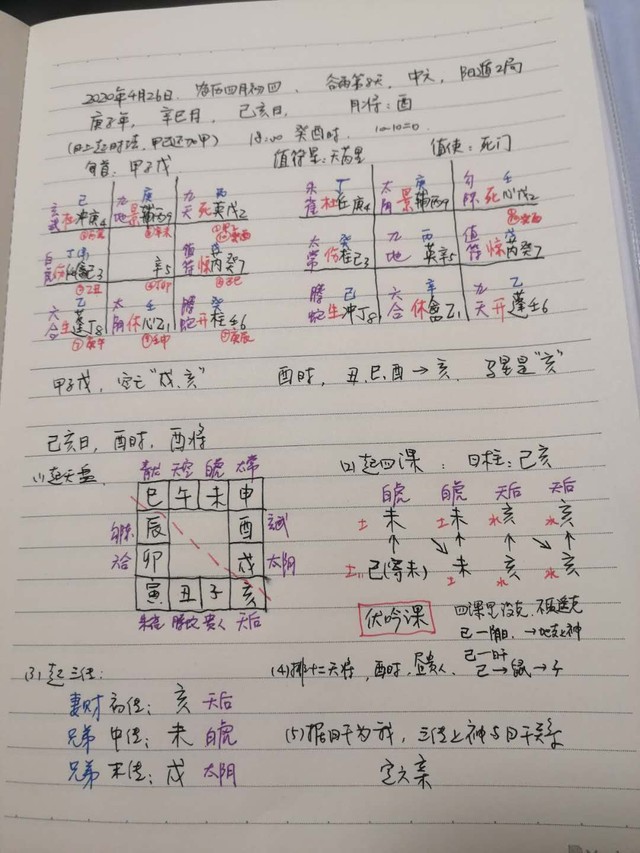 2020年4月26日. 农历四月初四, 谷雨第8天, 中元, 阳遁2局
庚子年, 辛巳月, 己亥日, 月将: 酉
(日上起时法, 甲己还加甲) 18:00 癸酉时. 10-10=0.
旬首: 甲子戊 值符星: 天芮星 值使: 死门
己 庚 丙 丁 庚 壬
玄武 杜冲庚4 九地 景辅丙9 九天 死英戊2 朱雀 杜任庚4 太阴 景辅丙9 勾陈 死心戊2
戊 癸 丙 戊
伤任己3 辛5 值符 惊芮癸7 太常 伤柱己3 九地 英辛5 值符 惊芮癸7
乙 壬 癸 己 辛 乙
六合 生蓬丁8 太阴 休心乙1 螣蛇 开柱壬6 螣蛇 生冲丁8 六合 休禽乙1 九天 开蓬壬6
甲子戊, 空亡"戌, 亥" 酉时, 丑, 巳, 酉→亥, 马星是"亥"
己亥日, 酉时, 酉将
(1)起天盘 青龙 天空 白虎 太常 (2)起四课: 日柱: 己亥
巳 午 未 申 白虎 白虎 天后 天后
勾陈 辰 酉 玄武 土未 土未 水亥 水亥
六合 卯 戌 太阴 土己(寄未) 未土 亥水 亥水
寅 丑 子 亥
朱雀 螣蛇 贵人 天后 伏吟课 四课里没克, 不跃遥克
己一阴日, →地支上神
(3)起三传: (4)排十二天将, 酉时, 昼贵人, 己→鼠→子
妻财 初传: 亥 天后
兄弟 中传: 未 白虎 (5)据日干为我, 三传上神与日干关系
兄弟 末传: 戌 太阴 定六亲